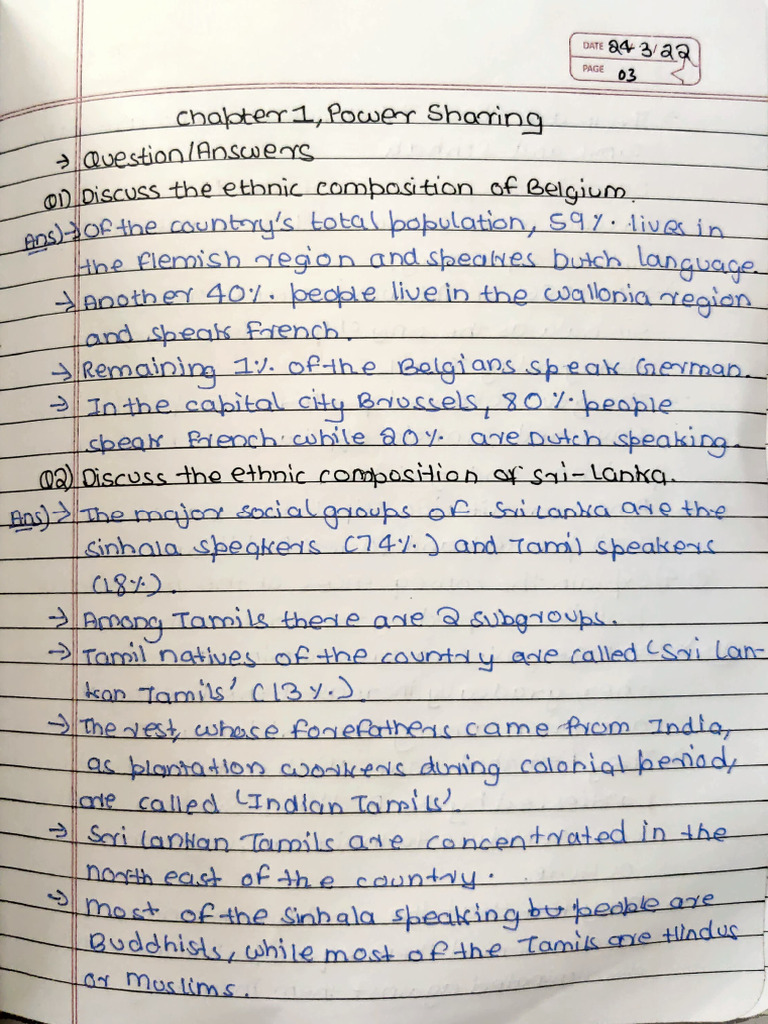 DATE 24 3/22
PAGE 03
Chapter 1, Power Sharing
→ Question/Answers
Q1) Discuss the ethnic composition of Belgium.
Ans)→ Of the country's total population, 59%. lives in
the flemish region and speakes Dutch language.
→ Another 40%. people live in the wallonia region
and speak French.
→ Remaining 1%. of the Belgians speak German.
→ In the capital city Brussels, 80%. people
speak French while 20%. are Dutch speaking.
Q2) Discuss the ethnic composition of Sri-Lanka.
Ans)→ The major social groups of Sri Lanka are the
sinhala speakers (74%.) and Tamil speakers
(18%.).
→ Among Tamils there are 2 subgroups.
→ Tamil natives of the country are called 'Sri Lan-
kan Tamils' (13%.).
→ The rest, whose forefathers came from India,
as plantation workers during colonial period,
are called 'Indian Tamils'
→ Sri lankan Tamils are concentrated in the
north east of the country.
→ Most of the sinhala speaking people are
Buddhists, while most of the Tamils are Hindus
or Muslims.